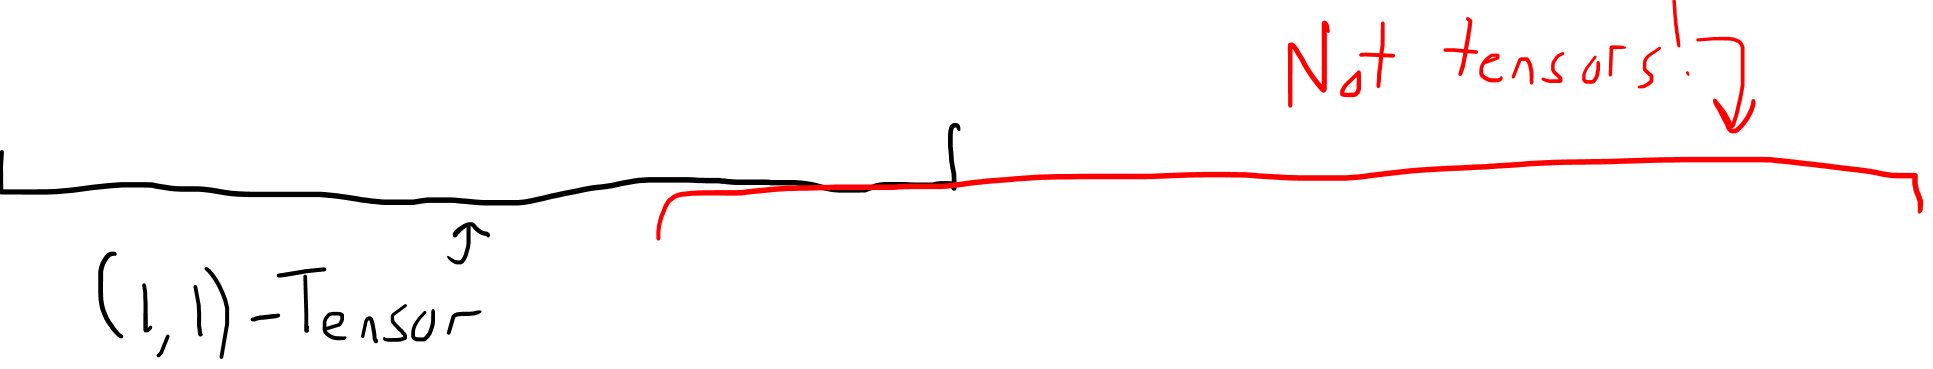 Not tensors!
(1,1)-Tensor